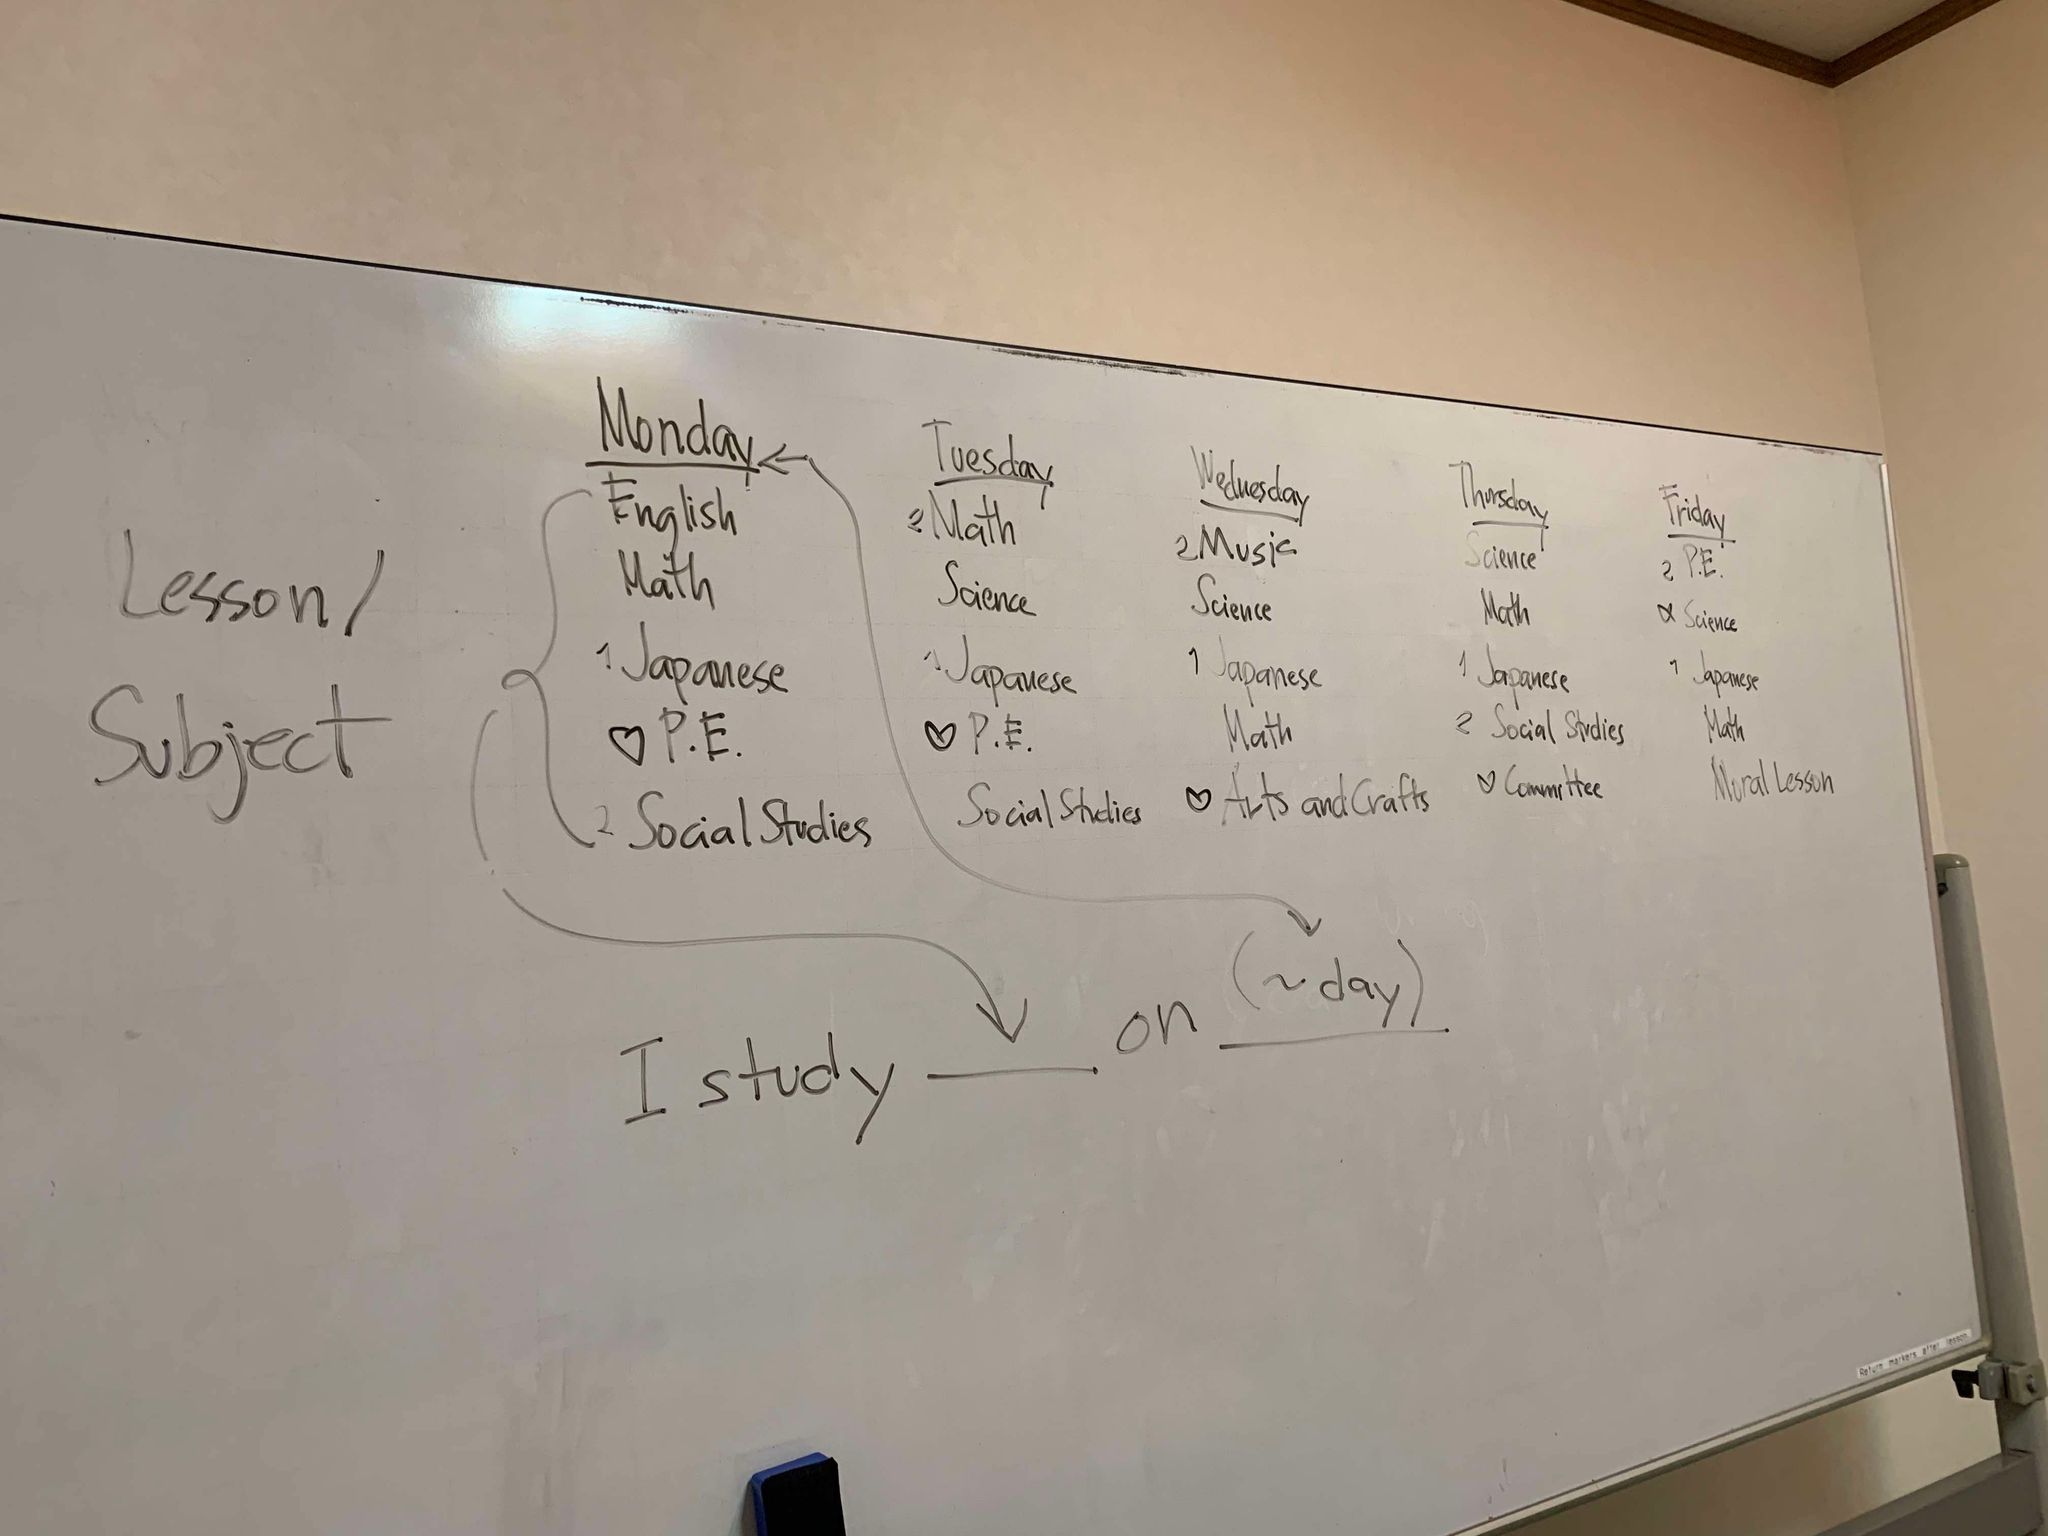 Lesson/
Subject
Monday
English
Math
1 Japanese
♡ P.E.
2 Social Studies
Tuesday
2 Math
Science
1 Japanese
♡ P.E.
Social Studies
Wednesday
2 Music
Science
1 Japanese
Math
♡ Arts and Crafts
Thursday
Science
Math
1 Japanese
2 Social Studies
♡ Committee
Friday
2 P.E.
Science
1 Japanese
Math
Moral Lesson
I study ____ on (~day)
Return markers after lesson